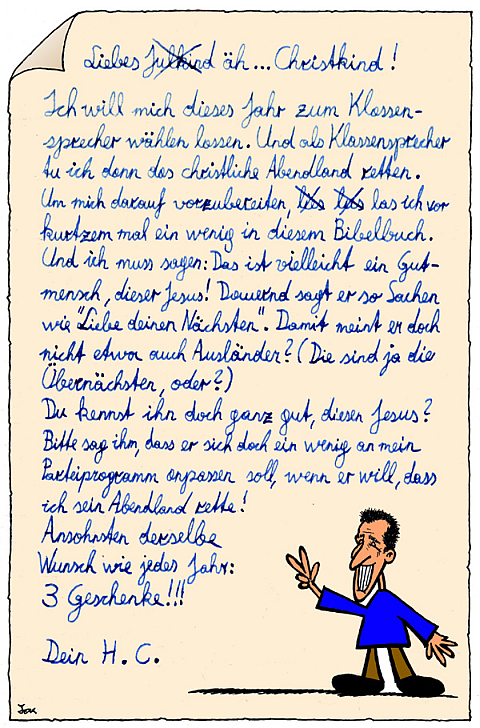 Liebes Julkind äh... Christkind!
Ich will mich dieses Jahr zum Klassen-
sprecher wählen lassen. Und als Klassensprecher
tu ich dann das christliche Abendland retten.
Um mich darauf vorzubereiten, les les las ich vor
kurtzem mal ein wenig in diesem Bibelbuch.
Und ich muss sagen: Das ist vielleicht ein Gut-
mensch, dieser Jesus! Dauernd sagt er so Sachen
wie "Liebe deinen Nächsten". Damit meint er doch
nicht etwa auch Ausländer? (Die sind ja die
Übernächsten, oder?)
Du kennst ihn doch ganz gut, diesen Jesus?
Bitte sag ihm, dass er sich doch ein wenig an mein
Parteiprogramm anpassen soll, wenn er will, dass
ich sein Abendland rette!
Ansohnsten derselbe
Wunsch wie jedes Jahr:
3 Geschenke!!!
Dein H. C.